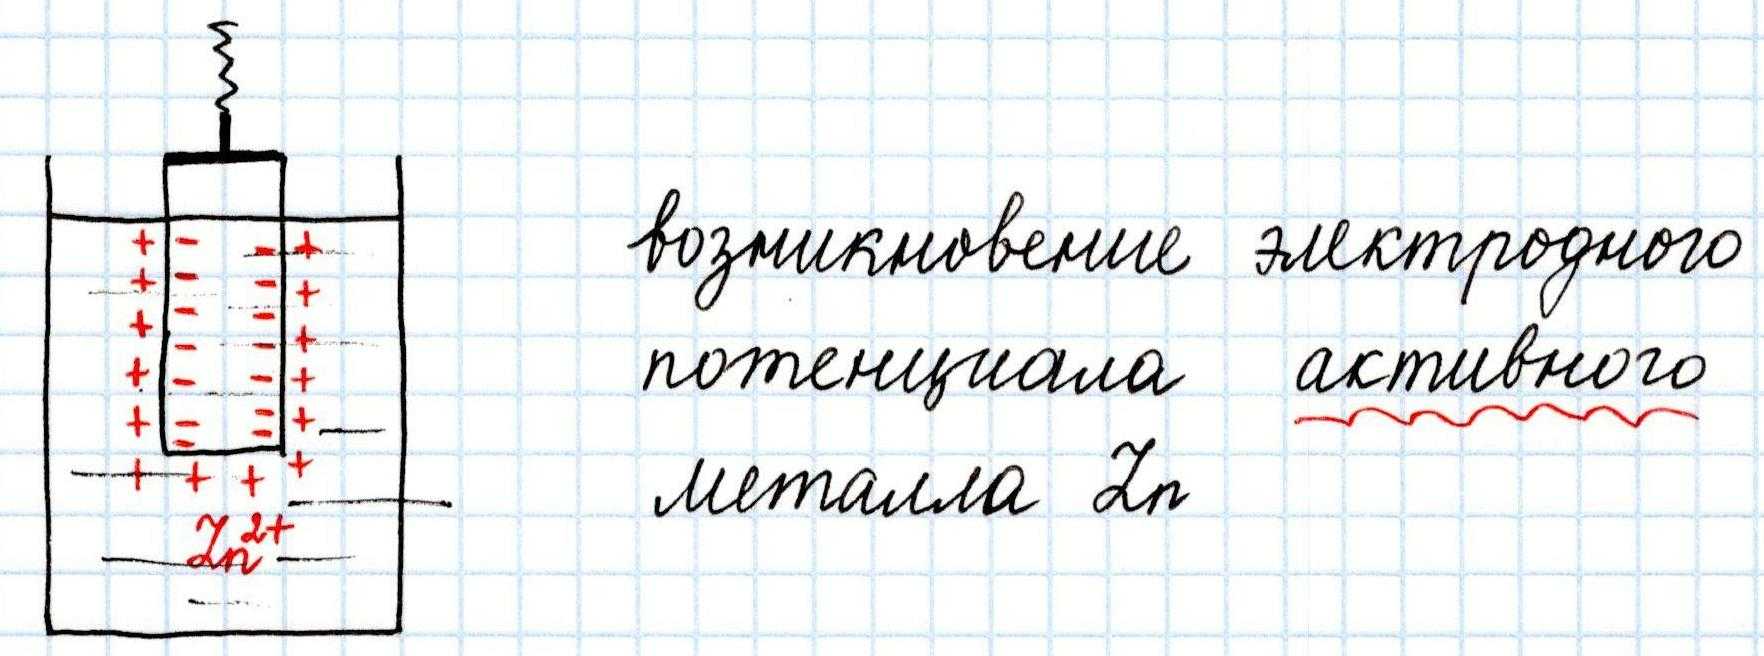 возникновение электродного
потенциала активного
металла Zn
Zn²⁺